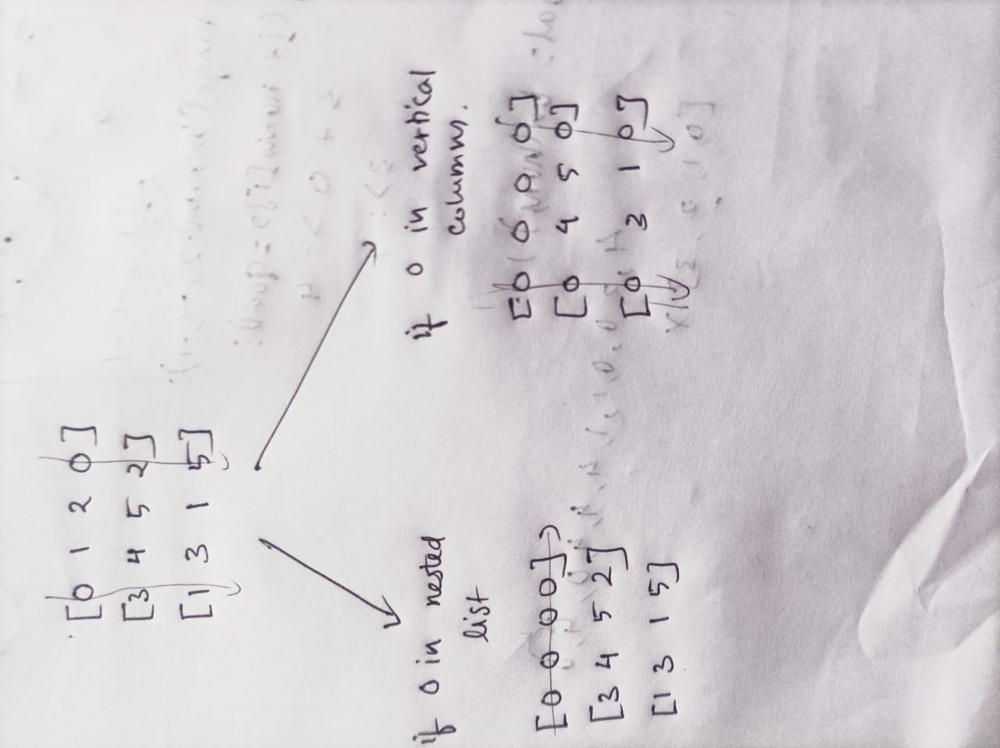 [0 1 2 0]
[3 4 5 2]
[1 3 1 5]
if 0 in nested
list
[0 0 0 0]
[3 4 5 2]
[1 3 1 5]
if 0 in vertical
columns.
[0 0 0 0]
[0 4 5 0]
[0 3 1 0]